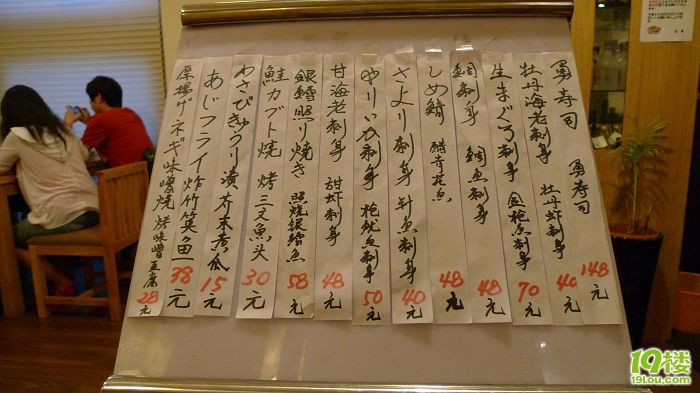 勇寿司 勇寿司 148元
牡丹海老刺身 牡丹虾刺身 40元
生まぐろ刺身 金枪鱼刺身 70元
鯛刺身 鯛鱼刺身 48元
しめ鯖 醋青花鱼 48元
さより刺身 针鱼刺身 40元
やりいか刺身 枪鱿鱼刺身 50元
甘海老刺身 甜虾刺身 48元
銀鱈照り焼き 照烧银鳕鱼 58元
鮭カブト焼 烤三文鱼头 30元
わさびきゅうり漬 芥末黄瓜 15元
あじフライ 炸竹筴鱼 38元
厚揚げネギ味噌焼 烤味噌豆腐 28元
19楼
19Lou.com